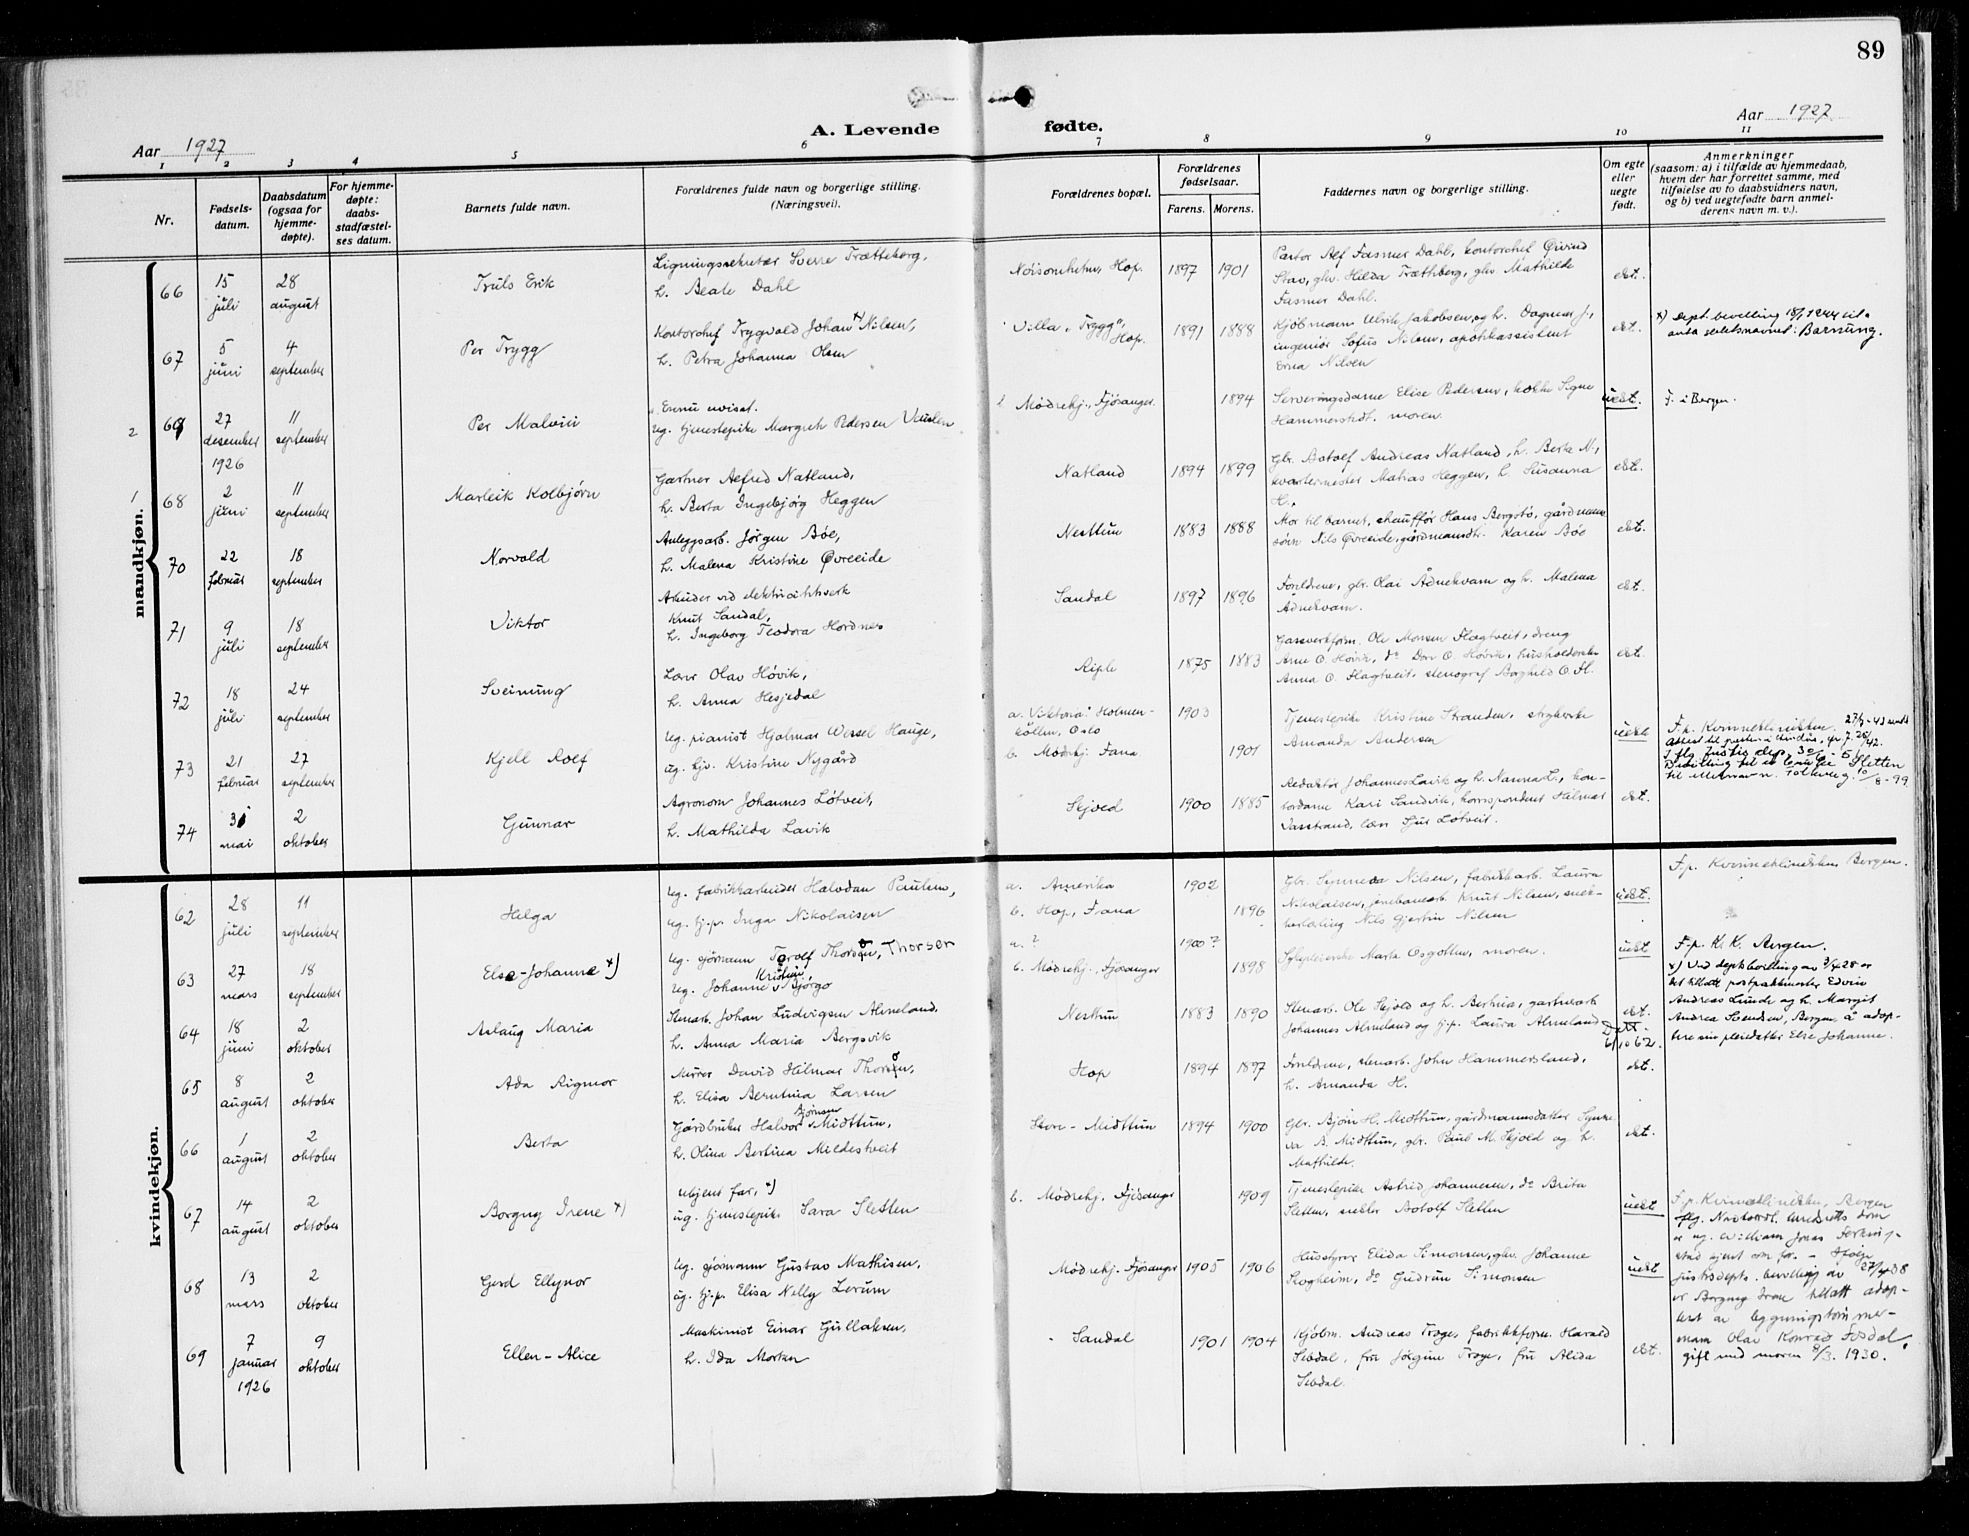 89
A. Levende fødte.
Aar 1927
Aar 1927
1 2 3 4 5 6 7 8 9 10 11
Nr.
Fødsels-
datum.
Daabsdatum
(ogsaa for
hjemme-
døpte).
For hjemme-
døpte:
daabs-
stadfæstel-
ses datum.
Barnets fulde navn.
Forældrenes fulde navn og borgerlige stilling.
(Næringsvei).
Forældrenes bopæl.
Forældrenes
fødselsaar.
Farens. Morens.
Faddernes navn og borgerlige stilling.
Om egte
eller
uegte
født.
Anmerkninger
(saasom: a) i tilfælde av hjemmedaab,
hvem der har forrettet samme, med
tilføielse av to daabsvidners navn,
og b) ved uegtefødte barn anmel-
derens navn m. v.).
mandkjøn.
66
15
juli
28
august
Truls Erik
Ligningssekretær Sverre Trætteberg,
h. Beate Dahl
Hop.
1897 1901
Pastor Alf Fasmer Dahl, kontorchef Øivind
Stav, ghv. Hilda Trætteberg, ghv. Mathilde
Fasmer Dahl.
ekt.
67
5
juni
4
september
Per Trygg
Kontorchef Trygvald Johan x) Nilsen,
h. Petra Johanna Olsen
Villa "Trygg",
Hop.
1891 1888
Kjøbmann Ulrik Jakobsen, og h. Dagmar J.,
ingeniør Sofus Nilsen, apothekassistent
Erna Nilsen
ekt.
antа slektsnavnet: Barnung.
2
69
27
desember
1926
11
september
Per Malvin
ug. tjenestepike Margreth Pedersen
Mødrehj., Fjøsanger.
1894
Serveringsdame Elise Pedersen, kokke Signe
Hammerstedt, moren.
uekt.
F. i Bergen.
1
68
2
juni
11
september
Marleik Kolbjørn
Gartner Alfred Natland,
h. Berta Ingebjørg Heggen
Natland
1894 1899
Gbr. Botolf Andreas Natland, h. Berta N.,
kvartermester Matias Heggen, h. Susanna
H.,
ekt.
70
22
februar
18
september
Norvald
Anleggsarb. Jørgen Bøe,
h. Malena Kristine Øvreeide
Nesttun
1883 1888
Mor til barnet, chauffør Hans Bergstø, gårdmanns-
sønn Nils Øvreeide, gårdmannsdt. Karen Bøe
ekt.
71
9
juli
18
september
Viktor
Arbeider ved elektricitetsverk
Knut Sandal,
h. Ingeborg Teodora Hordnes
Sandal
1897 1896
Foreldrene, gbr. Olai Ådnekvam og h. Malena
Ådnekvam.
ekt.
72
18
juli
24
september
Sveinung
Lærer Olav Høvik,
h. Anna Hesjedal
Riple
1875 1883
Gassverkform. Ole Monsen Flagtveit, dreng
Arne O. Høvik, do Dorv O. Høvik, husholderske
Anna O. Flagtveit, stenograf Borghild O. H.
ekt.
73
21
februar
27
september
Kjell Rolf
Ug. pianist Hjalmar Wessel Hauge,
ug. hjv. Kristine Nygård
a. "Viktoria" Holmen-
kollen, Oslo
b. Mødrehj. Fana
1903
1901
Tjenestepike Kristine Stranden, strykerske
Amanda Andersen
uekte
F.p. Kvinneklinikken
74
31
mai
2
oktober
Gunnar
Agronom Johannes Løtveit,
h. Mathilda Lavik
Skjold
1900 1885
Redaktør Johannes Lavik og h. Nanna L., kon-
tordame Kari Sandvik, korrespondent Hilmar
Vasstrand, lærer Sjur Løtveit.
ekt.
kvindekjøn.
62
28
juli
11
september
Helga
Ug. fabrikkarbeider Halvdan Paulsen,
ug. tj.p. Inga Nikolaisen
a. Amerika
b. Hop, Fana
1902
1896
Gbr. Synneva Nilsen, fabrikkarb. Laura
Nikolaisen, jernbanearb. Knut Nilsen, snek-
kerlærling Nils Gjertin Nilsen
uekt.
F.p. Kvinneklinikken, Bergen.
63
27
mars
18
september
Else-Johanne x)
Ug. sjømann Torolf Thorsen, Thorsen
Kristine
ug. Johanne v Bjørgo
a. ?
b. Mødrehj., Fjøsanger
1900?
1898
Sykepleierske Marta Osgotten, moren.
uekt
F.p. K.K. Bergen.
x) Ved deptsbevilling av 3/4 28 er
det tillatt postpakkmester Edvin
Andreas Lunde og h. Margit
Andrea Svendsen, Bergen å adop-
tere sin pleiedatter Else Johanne.
64
18
juni
2
oktober
Aslaug Maria
Stenarb. Johan Ludvigsen Almeland,
h. Anna Maria Bergsvik
Nesttun
1883 1890
Stenarb. Ole Skjold og h. Bertina, gartnerarb.
Johannes Almeland og tj.p. Laura Almeland
ekt.
65
8
august
2
oktober
Ada Rigmor
Murer David Hilmar Thorsen,
h. Elisa Berntina Larsen
Hop
1894 1897
Foreldrene, stenarb. John Hammersland,
h. Amanda H.
ekt.
66
1
august
2
oktober
Berta
Gårdbruker Halvor Bjørnsen Midttun,
h. Olina Bertina Mildestveit
Store-Midttun
1894 1900
Gbr. Bjørn H. Midttun, gårdmannsdatter Synne-
va B. Midttun, gbr. Paul M. Skjold og h.
Mathilde.
ekt.
67
14
august
2
oktober
Borgny Irene x)
ukjent far, x)
ug. tjenestepike Sara Sletten
b. Mødrehj. Fjøsanger
1909
Tjenestepike Astrid Johannesen, do Brita
Sletten, snekker Botolf Sletten
uekt
F.p. Kvinneklinikken, Bergen
68
13
mars
2
oktober
Gerd Ellynor
Ug. sjømann Gustav Mathisen,
ug. tj.p. Elisa Nelly Lerum
Mødrehj. Fjøsanger
1905 1906
Husstyrer Elida Simonsen, ghv. Johanne
Skogheim, do Gudrun Simonsen
uekt
justisdepts. bevilling av 27/4 38
er Borgny Irene tillatt adop-
tert av
Olav Konrad Fosdal,
gift med moren 8/3. 1930.
69
7
januar
1926
9
oktober
Ellen-Alice
Maskinist Einar Gullaksen,
h. Ida Morken
Sandal
1901 1904
Kjøbm. Andreas Troye, fabrikkform. Harald
Sebdal, fru Jørgine Troye, fru Alida
Sebdal.
ekt.